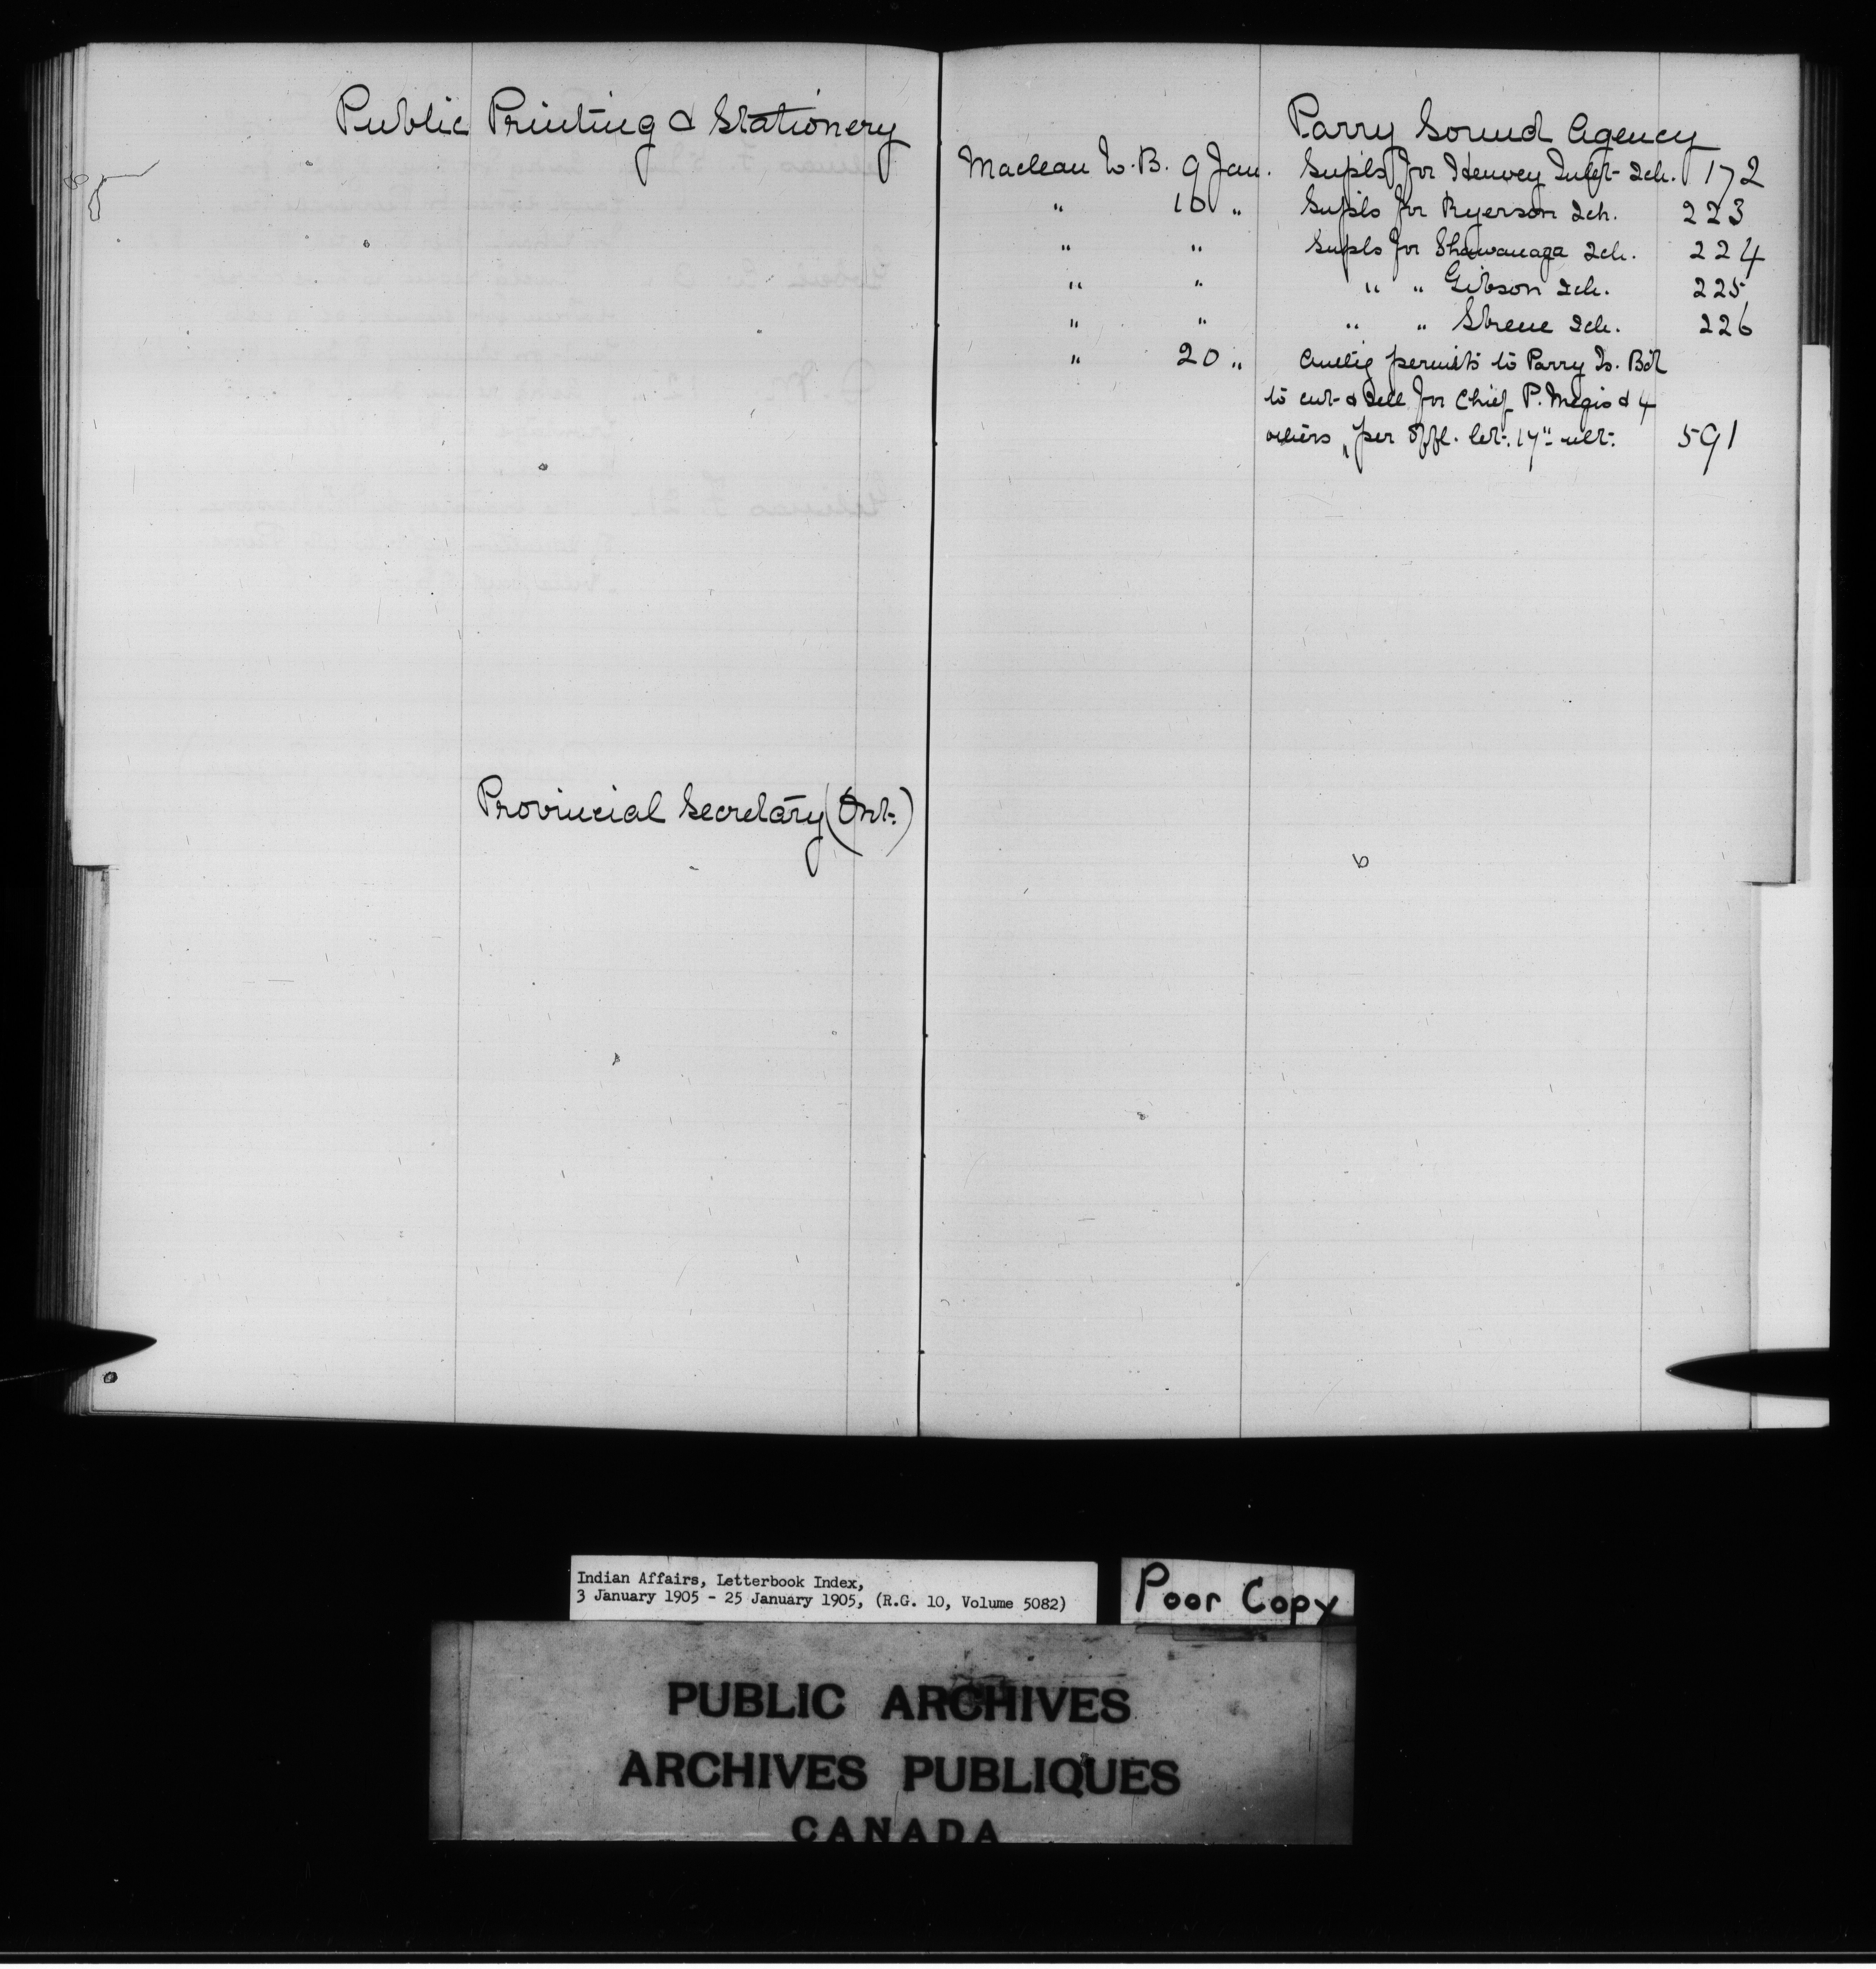 Public Printing & Stationery
Provincial Secretary (Ont.)
Parry Sound Agency
Maclean W. B. 9 Jan. Supls for Henvey Inlet Sch. 172
" 10 " Supls for Ryerson Sch. 223
" " Supls for Shawanaga Sch. 224
" " " " Gibson Sch. 225
" " " " Skene Sch. 226
" 20 " permits to Parry Is. Bd
to cut & sell for Chief P. Megis & 4
others, per offl. let. 17" ult. 591
Indian Affairs, Letterbook Index,
3 January 1905 - 25 January 1905, (R.G. 10, Volume 5082)
Poor Copy
PUBLIC ARCHIVES
ARCHIVES PUBLIQUES
CANADA